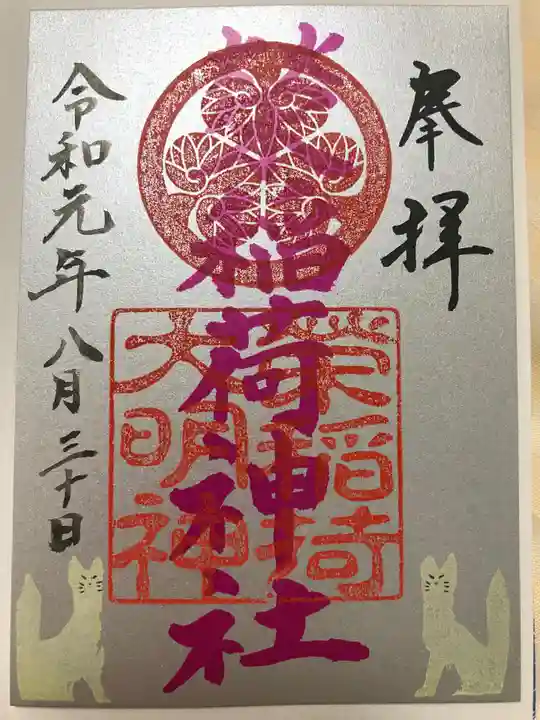 奉拝
榮稲荷神社
榮稲荷
大明神
令和元年八月三十日